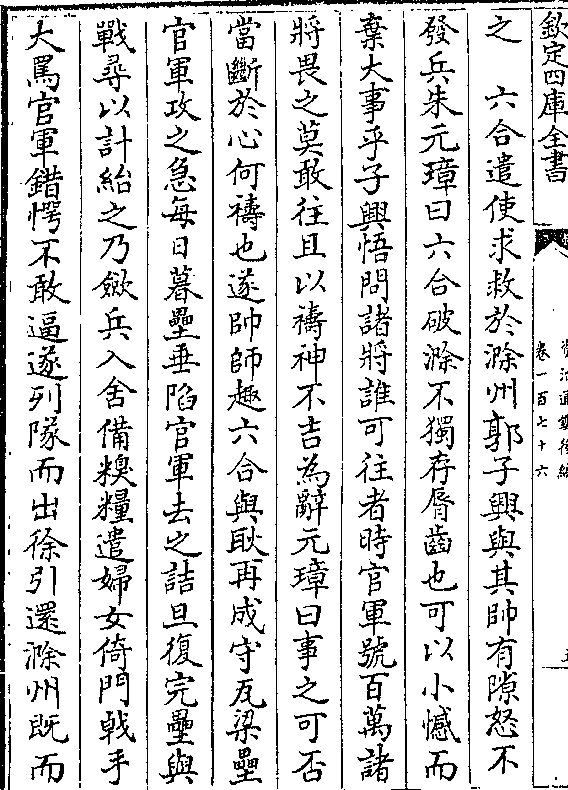 欽定四庫全書
資治通鑑後編
卷一百七十六
五
之　六合遣使求救於滁州郭子興與其帥有隙怒不
發兵朱元璋曰六合破滁不獨存脣齒也可以小憾而
棄大事乎子興悟問諸將誰可往者時官軍號百萬諸
將畏之莫敢往且以禱神不吉為辭元璋曰事之可否
當斷於心何禱也遂帥師趣六合與耿再成守瓦梁壘
官軍攻之急每日暮壘垂陷官軍去之詰旦復完壘與
戰尋以計紿之乃斂兵入舍備糗糧遣婦女倚門戟手
大罵官軍錯愕不敢逼遂列隊而出徐引還滁州既而